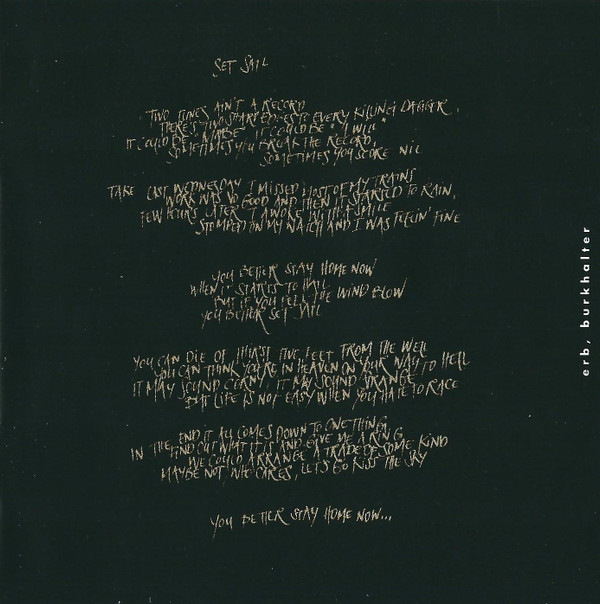 SET SAIL
TWO TUNES AIN'T A RECORD
THERE'S TWO SHARP EDGES IT EVERY KILLING DAGGER,
IT COULD BE "MAYBE" IT COULD BE "I WILL"
SOMETIMES YOU BREAK THE RECORD,
SOMETIMES YOU SCORE NIL
TAKE LAST WEDNESDAY I MISSED MOST OF MY TRAINS
WORK WAS NO GOOD AND THEN IT STARTED TO RAIN,
FEW HOURS LATER I AWOKE WITH A SMILE
STOMPED ON MY WATCH AND I WAS FEELIN' FINE
YOU BETTER STAY HOME NOW
WHEN IT STARTS TO HAIL
BUT IF YOU FEEL THE WIND BLOW
YOU BETTER SET SAIL
YOU CAN DIE OF THIRST FIVE FEET FROM THE WELL
YOU CAN THINK YOU'RE IN HEAVEN ON YOUR WAY TO HELL
IT MAY SOUND CORNY, IT MAY SOUND STRANGE
BUT LIFE IS NOT EASY WHEN YOU HATE TO RACE
IN THE END IT ALL COMES DOWN TO ONE THING,
FIND OUT WHAT IT IS AND GIVE ME A RING
WE COULD ARRANGE A TRADE OF SOME KIND
MAYBE NOT, WHO CARES, LET'S GO KISS THE SKY
YOU BETTER STAY HOME NOW...
erb, burkhalter